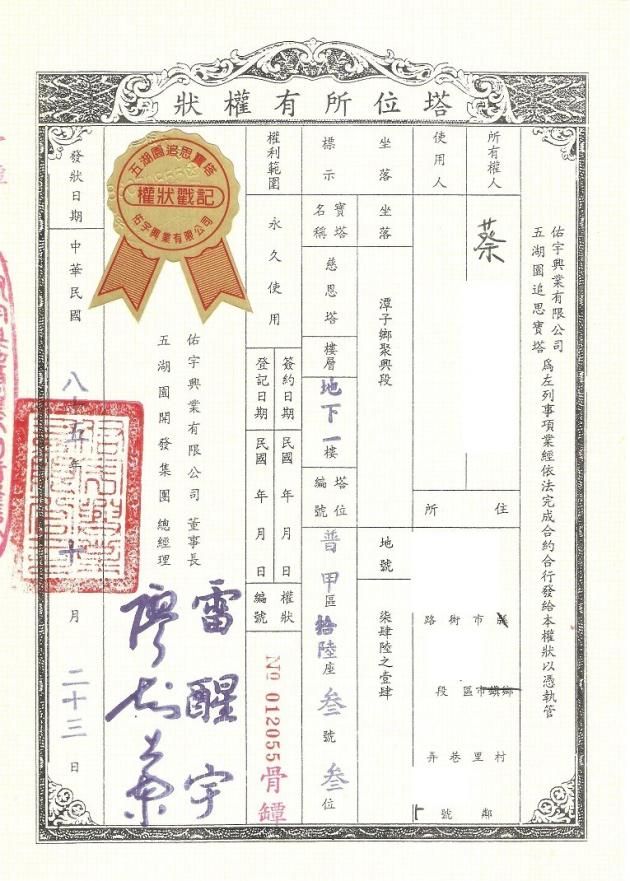 塔位所有權狀
佑宇興業有限公司
五湖園追思寶塔
為左列事項業經依法完成合約合行發給本權狀以憑執管
所有權人 蔡
使用人
住所
縣市街路
鄉鎮市區段
村里巷弄
鄰號
坐落 坐落 潭子鄉聚興段 地號 柒肆陸之壹肆
標示 寶塔名稱 慈恩塔 樓層 地下一樓 塔位編號 普甲區拾陸座叁號叁位
權利範圍 永久使用
簽約日期 民國 年 月 日
登記日期 民國 年 月 日
權狀編號 № 012055 骨罈
五湖園追思寶塔
權狀戳記
佑宇興業有限公司
佑宇興業有限公司 董事長 雷醒宇
五湖園開發集團 總經理
發狀日期 中華民國 八十五年 十月 二十三日